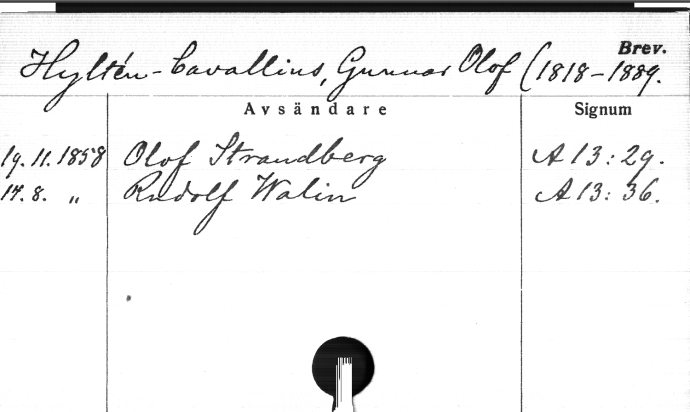 Brev.
Hyltén-Cavallius, Gunnar Olof (1818-1889.
Avsändare Signum
19.11.1858 Olof Strandberg A 13:29.
17.8. „ Rudolf Walin A 13:36.